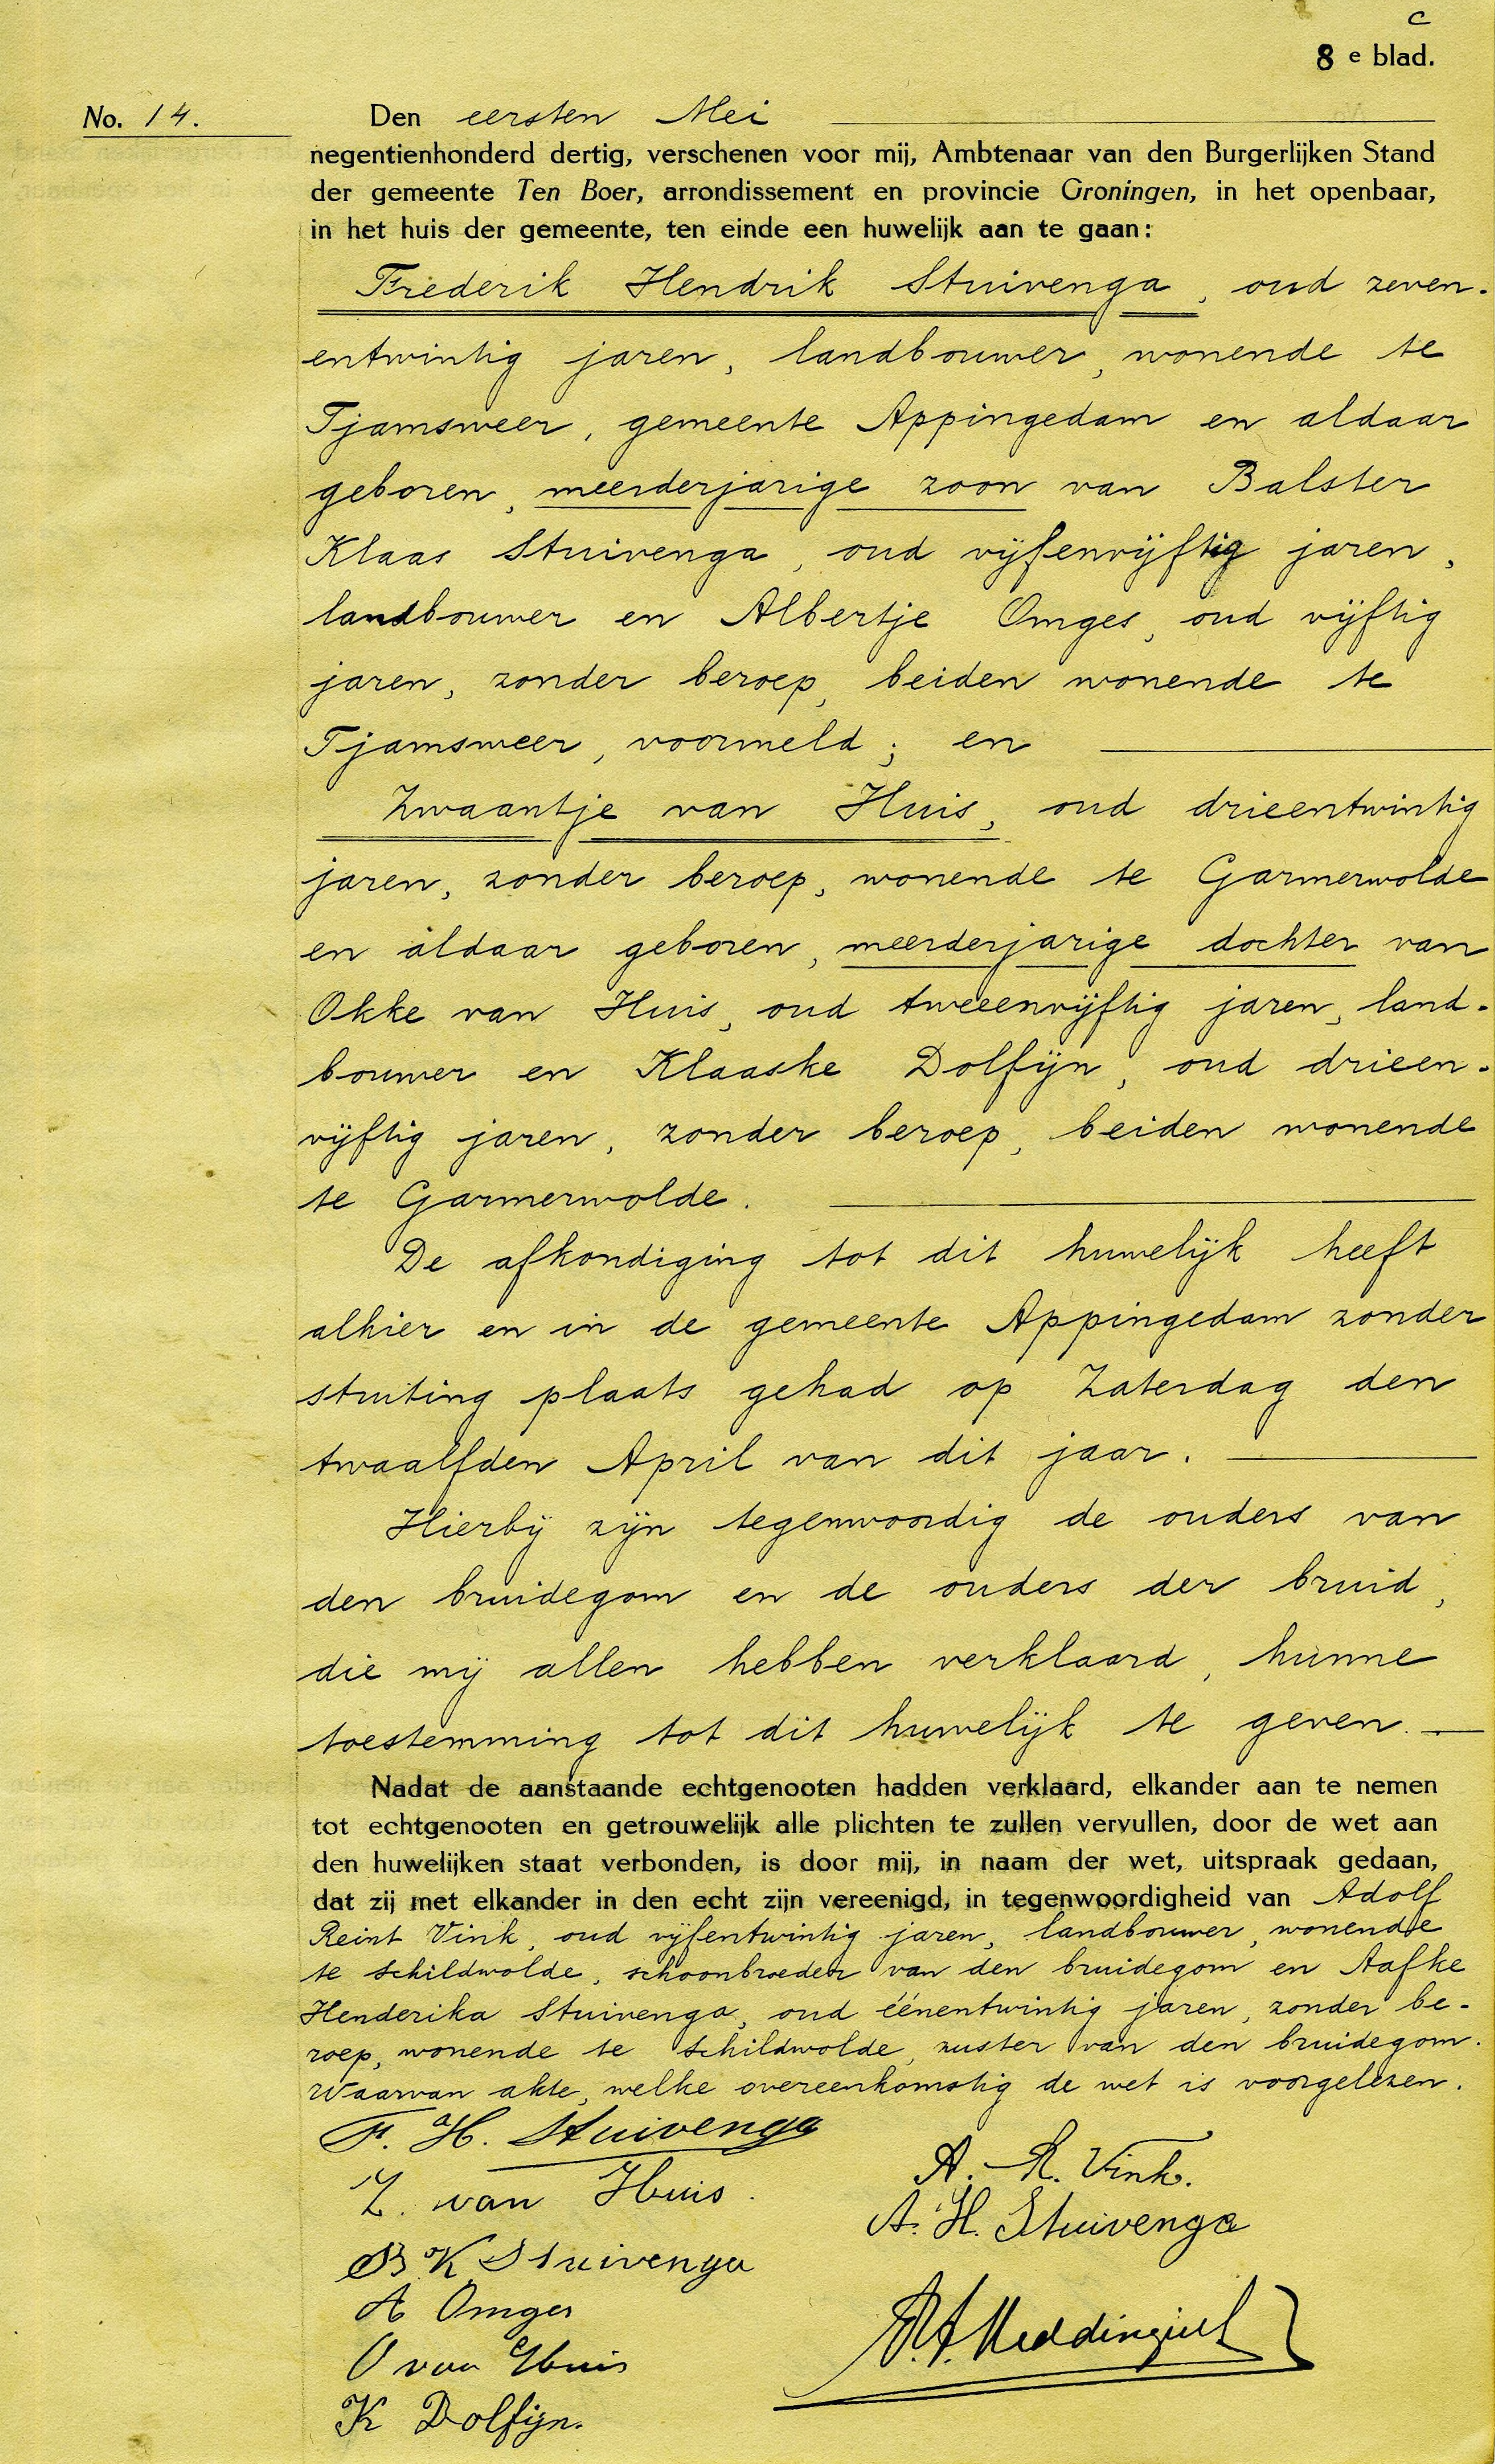 c
8 e blad.
No. 14.
Den eersten Mei
negentienhonderd dertig, verschenen voor mij, Ambtenaar van den Burgerlijken Stand
der gemeente Ten Boer, arrondissement en provincie Groningen, in het openbaar,
in het huis der gemeente, ten einde een huwelijk aan te gaan:
Frederik Hendrik Stuivenga, oud zeven-
entwintig jaren, landbouwer, wonende te
Tjamsweer, gemeente Appingedam en aldaar
geboren, meerderjarige zoon van Balster
Klaas Stuivenga, oud vijfenvijftig jaren,
landbouwer en Albertje Omges, oud vijftig
jaren, zonder beroep, beiden wonende te
Tjamsweer, voormeld; en
Zwaantje van Huis, oud drieentwintig
jaren, zonder beroep, wonende te Garmerwolde
en aldaar geboren, meerderjarige dochter van
Okke van Huis, oud tweeenvijftig jaren, land-
bouwer en Klaaske Dolfijn, oud drieen-
vijftig jaren, zonder beroep, beiden wonende
te Garmerwolde.
De afkondiging tot dit huwelijk heeft
alhier en in de gemeente Appingedam zonder
stuiting plaats gehad op Zaterdag den
twaalfden April van dit jaar.
Hierbij zijn tegenwoordig de ouders van
den bruidegom en de ouders der bruid,
die mij allen hebben verklaard, hunne
toestemming tot dit huwelijk te geven.
Nadat de aanstaande echtgenooten hadden verklaard, elkander aan te nemen
tot echtgenooten en getrouwelijk alle plichten te zullen vervullen, door de wet aan
den huwelijken staat verbonden, is door mij, in naam der wet, uitspraak gedaan,
dat zij met elkander in den echt zijn vereenigd, in tegenwoordigheid van Adolf
Reint Vink, oud vijfentwintig jaren, landbouwer, wonende
te Schildwolde, schoonbroeder van den bruidegom en Aafke
Henderika Stuivenga, oud éénentwintig jaren, zonder be-
roep, wonende te Schildwolde, zuster van den bruidegom.
Waarvan akte, welke overeenkomstig de wet is voorgelezen.
F. H. Stuivenga
Z. van Huis.
B K Stuivenga
A Omges
O van Huis
K Dolfijn.
A. R. Vink.
A. H. Stuivenga